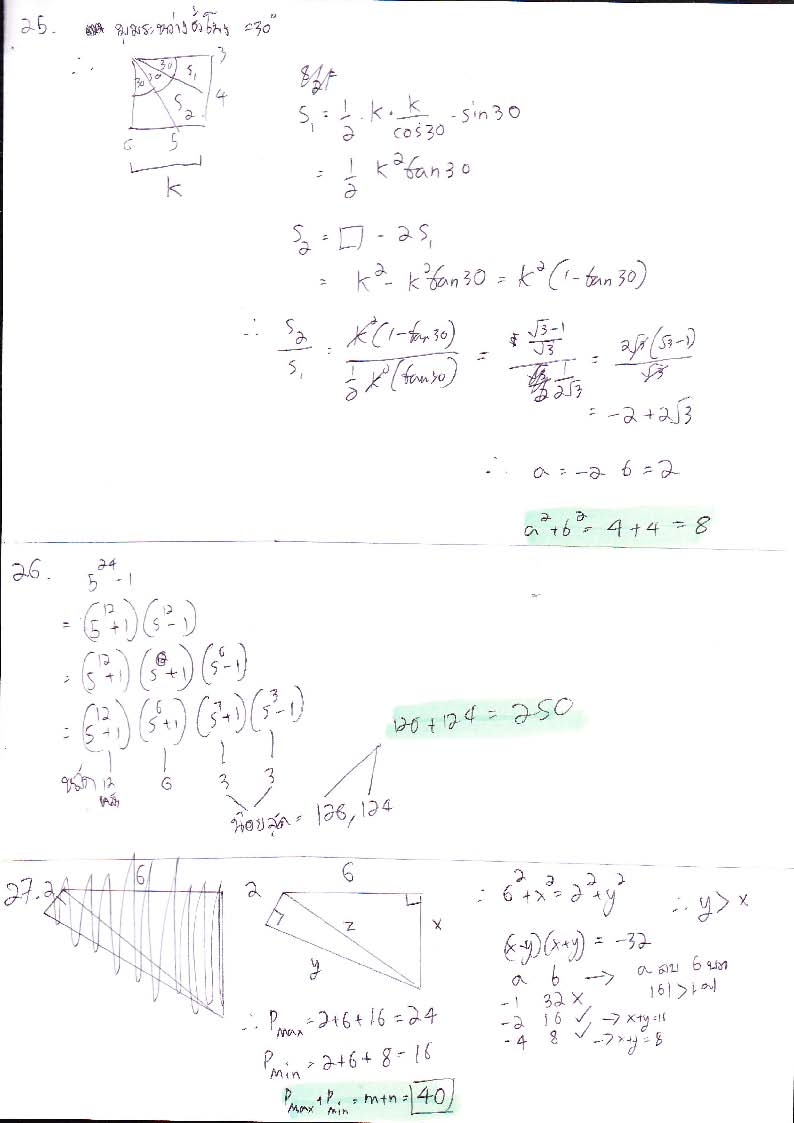 25. มุมระหว่างชั่วโมง = 30°
∴
3
30 30 30
S₁
4
S₂
6 5
k
S₁ = 1/2 · k · k/cos30 · sin30
= 1/2 k² tan30
S₂ = □ - 2S₁
= k² - k² tan30 = k²(1 - tan30)
∴ S₂/S₁ = k²(1-tan30) / 1/2 k²(tan30) = (√3-1)/√3 / 1/2√3 = 2√3(√3-1)/√3
= -2 + 2√3
∴ a = -2 b = 2
a² + b² = 4 + 4 = 8
26. 5²⁴ - 1
= (5¹² + 1)(5¹² - 1)
= (5¹² + 1)(5⁶ + 1)(5⁶ - 1)
= (5¹² + 1)(5⁶ + 1)(5³ + 1)(5³ - 1)
126 + 124 = 250
12 6 3 3
หลัก
น้อยสุด = 126, 124
27. 2 6
2 6
z x
y
∴ 6² + x² = 2² + y² ∴ y > x
(x-y)(x+y) = -32
a b → a ลบ b บวก
|b| > |a|
-1 32 ×
-2 16 ✓ → x+y = 16
-4 8 ✓ → x+y = 8
∴ Pmax = 2+6+16 = 24
Pmin = 2+6+8 = 16
Pmax + Pmin = m+n = 40